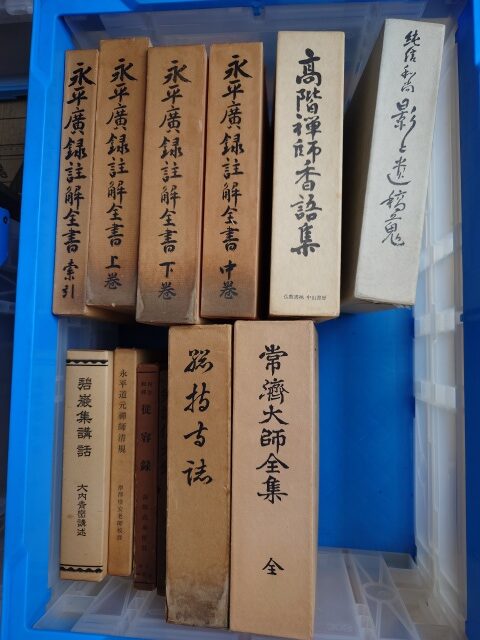 永平廣録註解全書 索引
永平廣録註解全書 上巻
永平廣録註解全書 下巻
永平廣録註解全書 中巻
高階禅師香語集
仏教書林 中山書房
影と遺稿蒐
碧巌集講話
大内青巒講述
永平道元禅師清規
從容録
總持寺誌
常濟大師全集
全